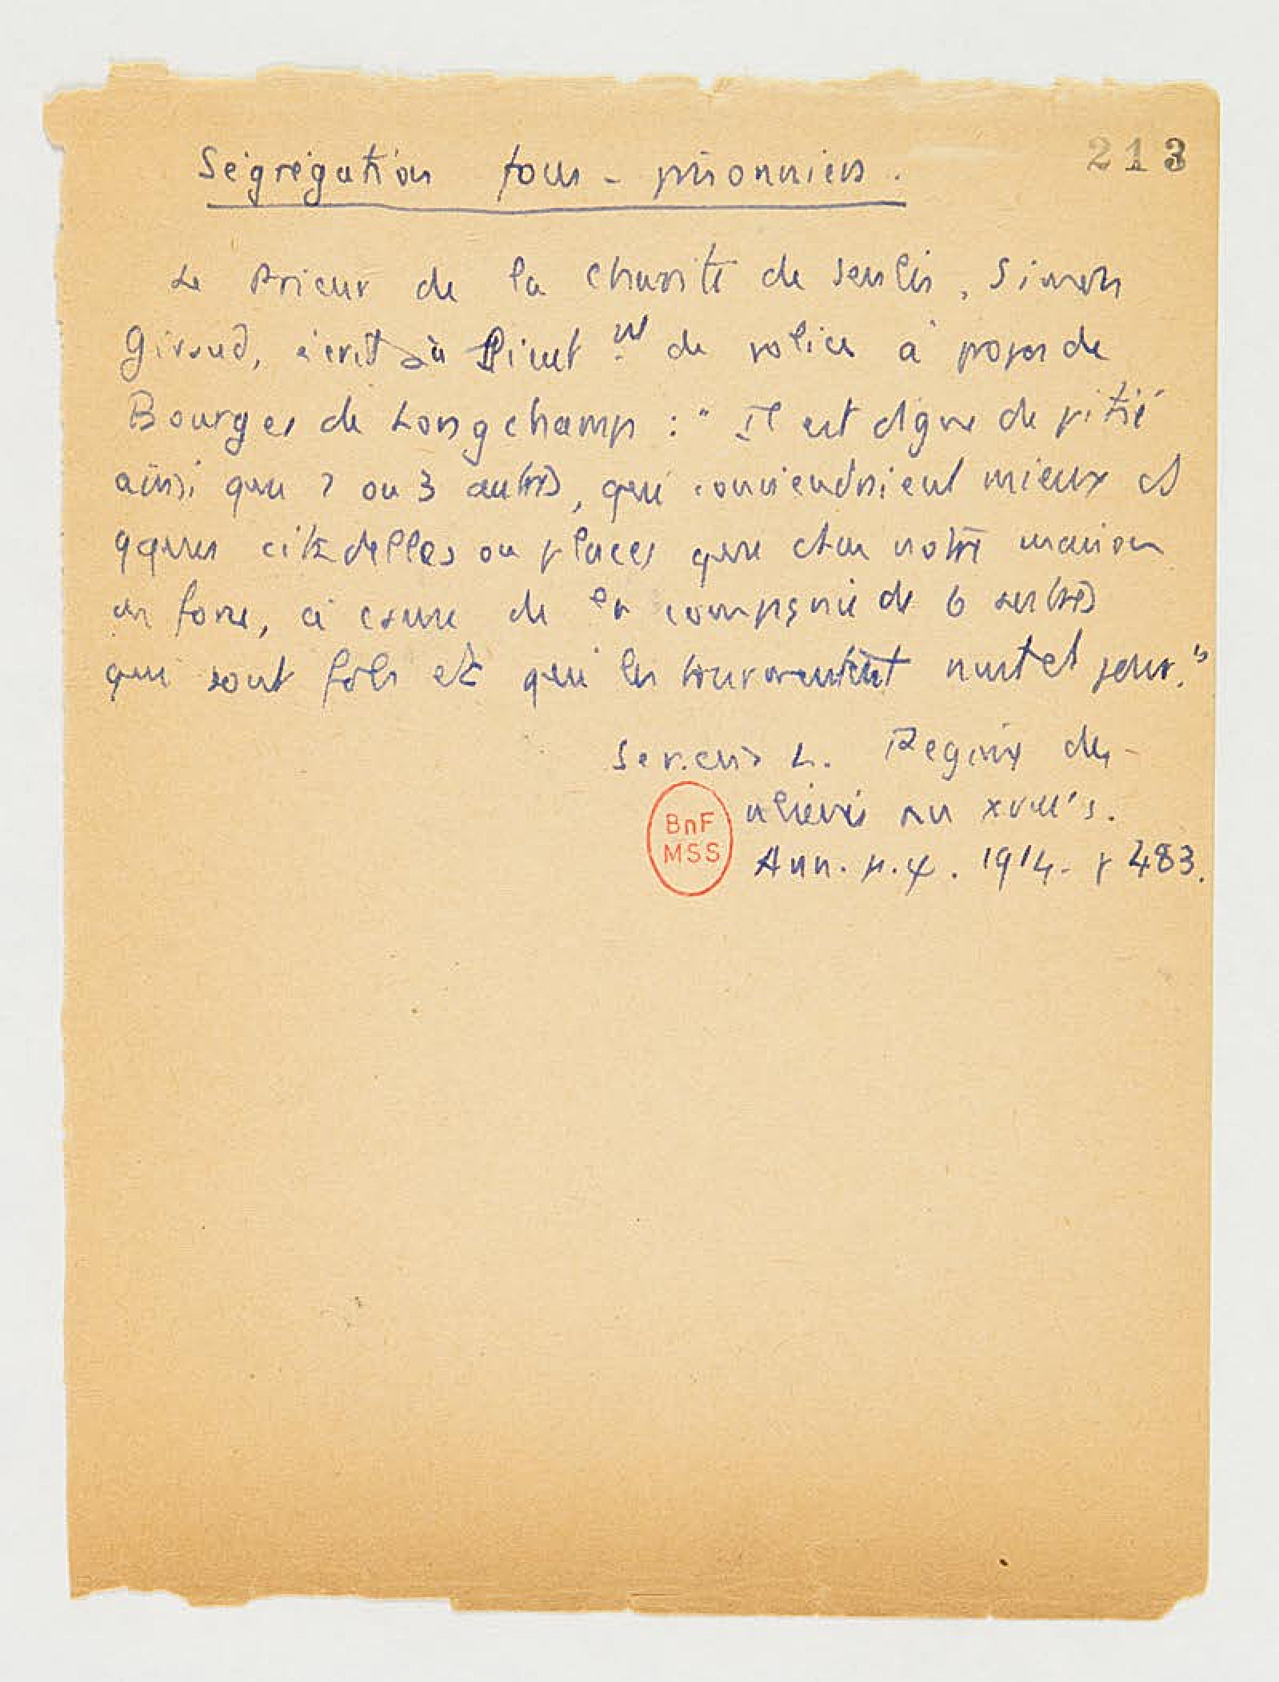 213
Ségrégation fous - prisonniers.
Le Prieur de la Charité de Senlis, Simon
Giraud, écrit au Lieut de police à propos de
Bourges de Longchamp : " Il est digne de pitié
ainsi que 2 ou 3 autres, qui conviendraient mieux ds
qques citadelles ou places que dans notre maison
de force, à cause de la compagnie de 6 autres
qui sont fols et qui les tourmentent nuit et jour."
Sérieux L. Régime des
aliénés au XVIII's.
Ann. m.ψ. 1914. p 483.
BnF
MSS